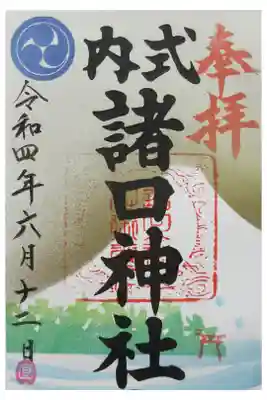 奉拝
式内
諸口神社
令和四年六月十二日